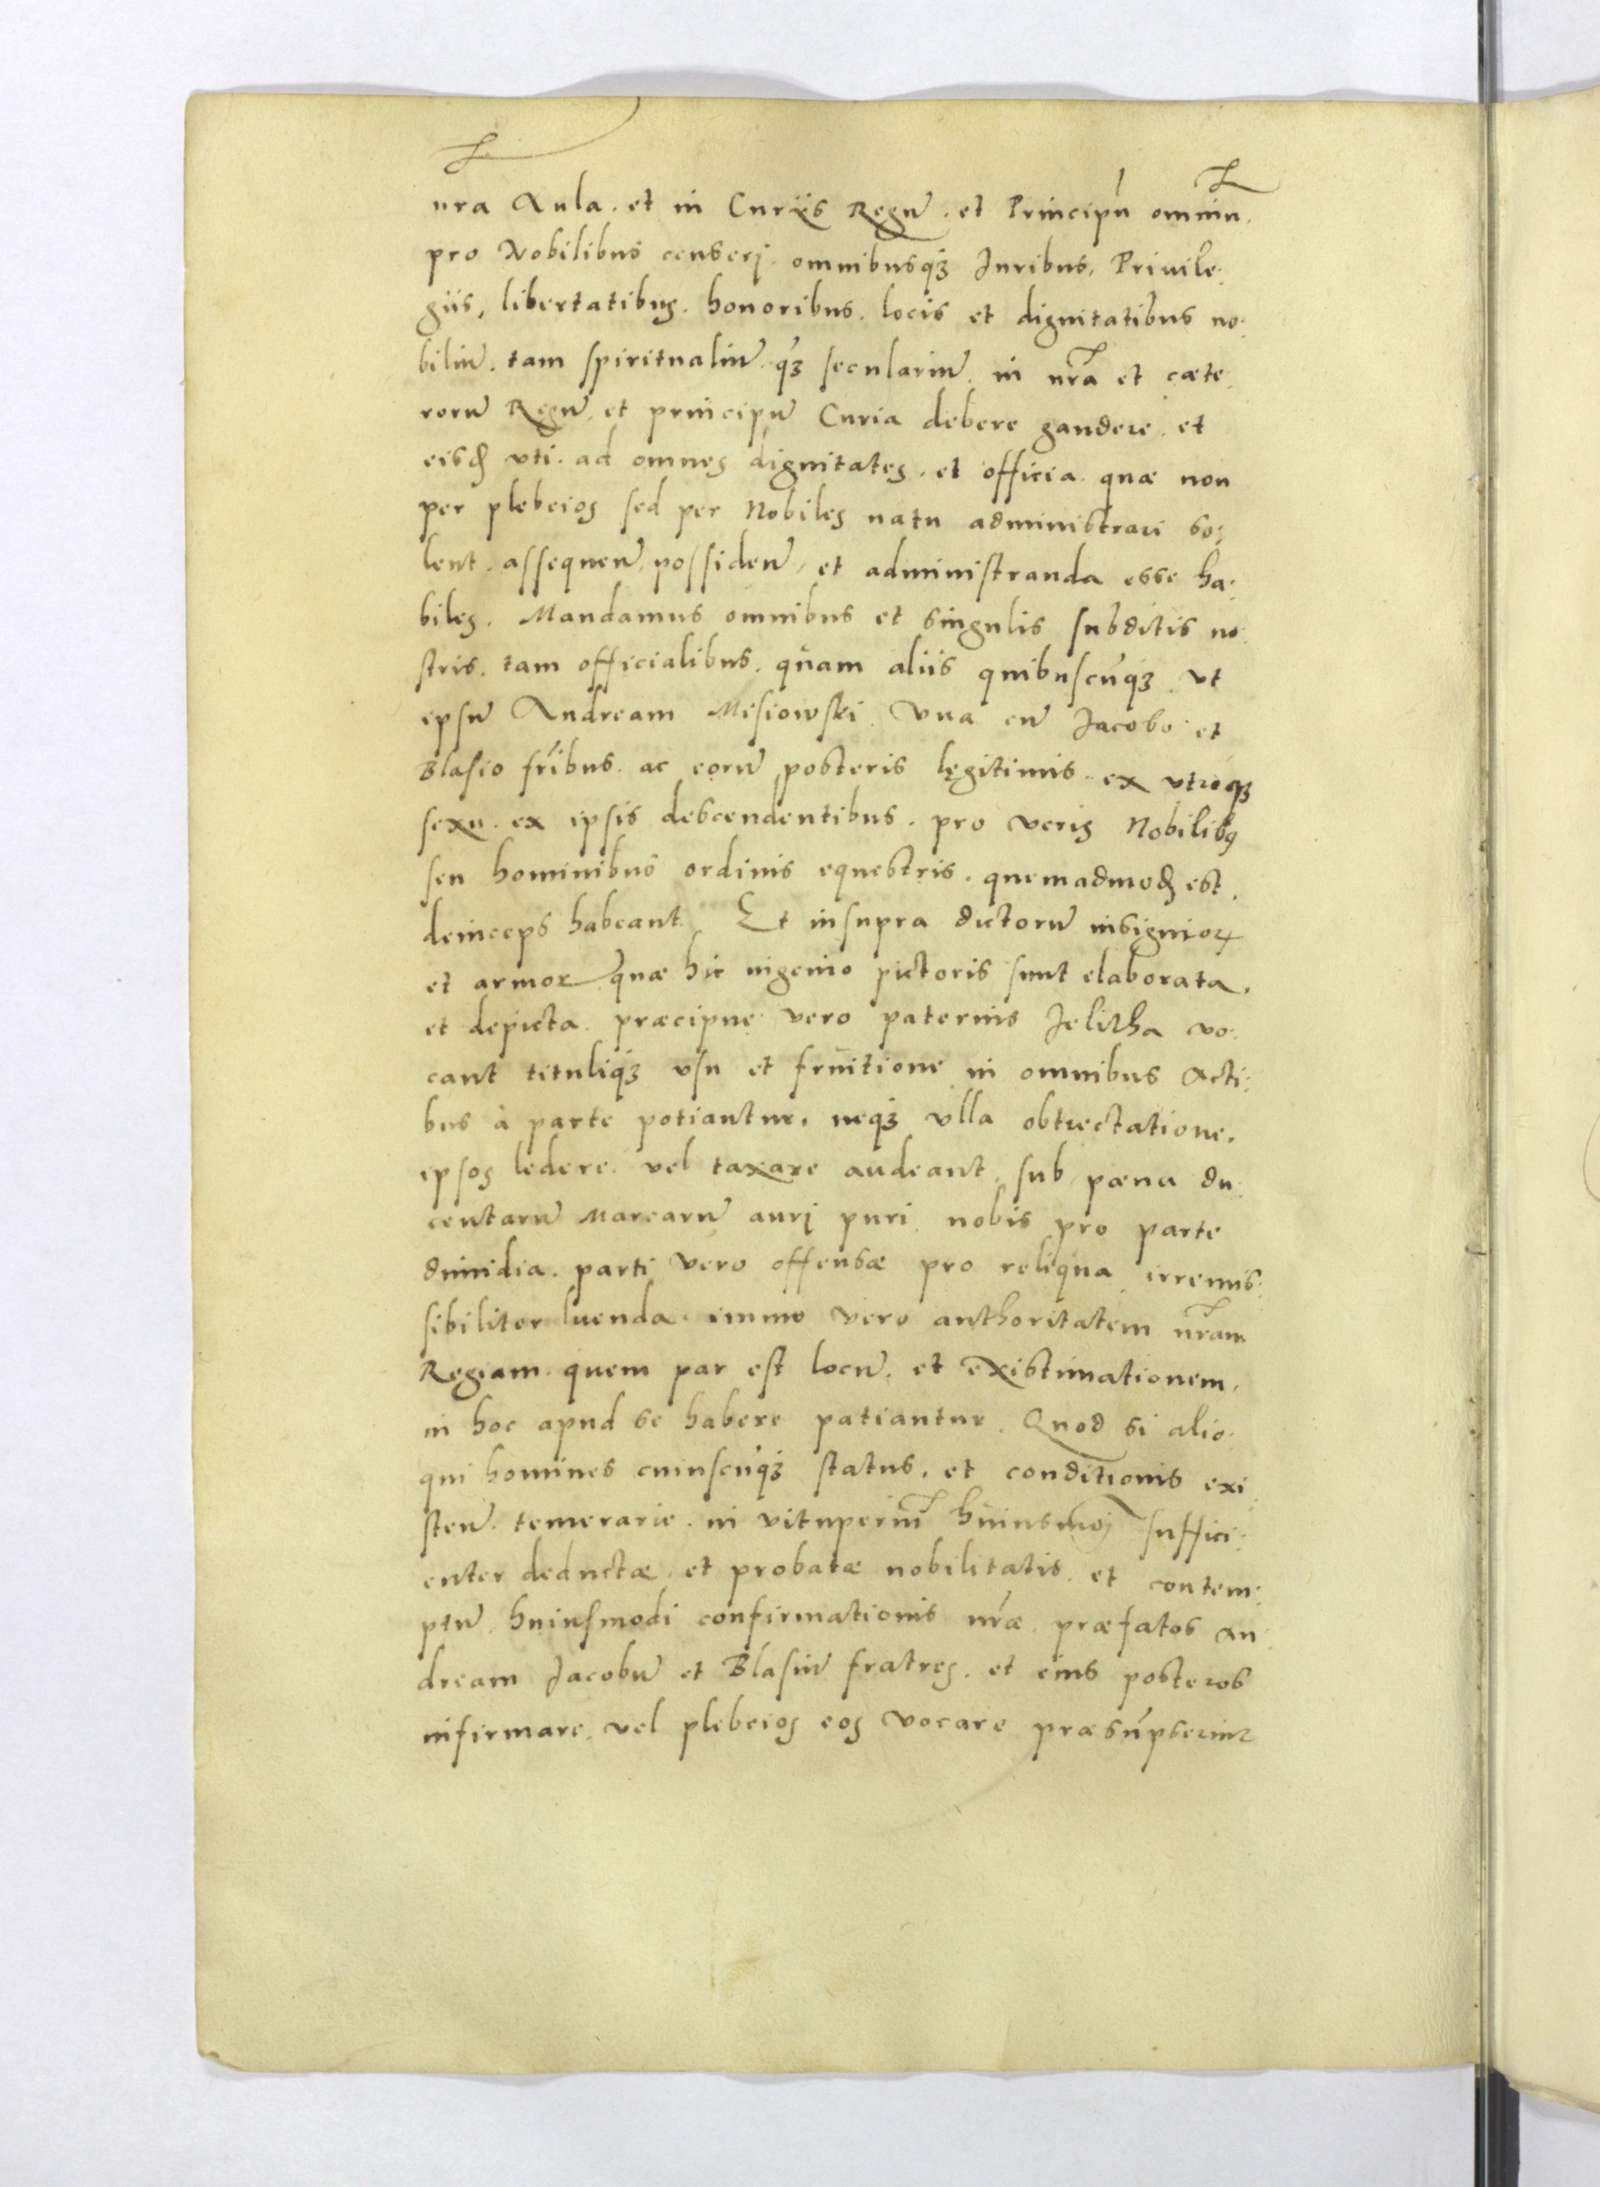 nr̃a Aula. et in Curiis Regũ. et Principũ omniũ.
pro Nobilibus censerj. omnibusqꝫ Juribus, Priuile-
giis, libertatibus. honoribus. locis et dignitatibus no-
biliũ. tam spiritualiũ qꝫ seculariũ. in nr̃a et cæte-
rorũ Regũ. et principũ Curia debere gaudere. et
eisđ vti. ad omnes dignitates. et officia. quæ non
per plebeios sed per Nobiles natu administrari so-
lent. assequeñ possideñ, et administranda esse ha-
biles. Mandamus omnibus et singulis subditis no-
stris. tam officialibus. quam aliis quibuscũqꝫ. vt
ipsũ Andream Misiowski. vna cũ Jacobo et
Blasio fr̃ibus. ac eorũ posteris legitimis ex vtroqꝫ
sexu. ex ipsis descendentibus. pro veris Nobilibꝰ
seu hominibus ordinis equestris. quemadmođ est.
deinceps habeant. Et insupra dictorũ insigniorꝝ
et armorꝝ quæ hic ingenio pictoris sunt elaborata.
et depicta. præcipue vero paternis Jelitha vo-
cant tituliqꝫ vsu et fruitione in omnibus Acti-
bus à parte potiantur. neqꝫ vlla obtrectatione.
ipsos ledere. vel taxare audeant. sub pæna du-
centarũ Marcarũ aurj puri nobis pro parte
dimidia. parti vero offensæ pro reliqua irremis-
sibiliter luenda. immo vero authoritatem nr̃am
Regiam. quem par est locũ. et existimationem.
in hoc apud se habere patiantur. Quod si alio-
qui homines cuiuscũqꝫ status. et conditionis exi-
steñ. temerarie. in vituperiũ huiusmoj suffici-
enter deductæ. et probatæ nobilitatis. et contem-
ptũ huiusmodi confirmationis nr̃æ præfatos An-
dream Jacobũ et Blasiũ fratres. et eius posteros
infirmare. vel plebeios eos vocare præsũpserint